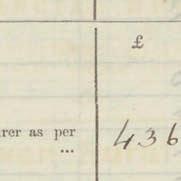 £
rer as per 436
...